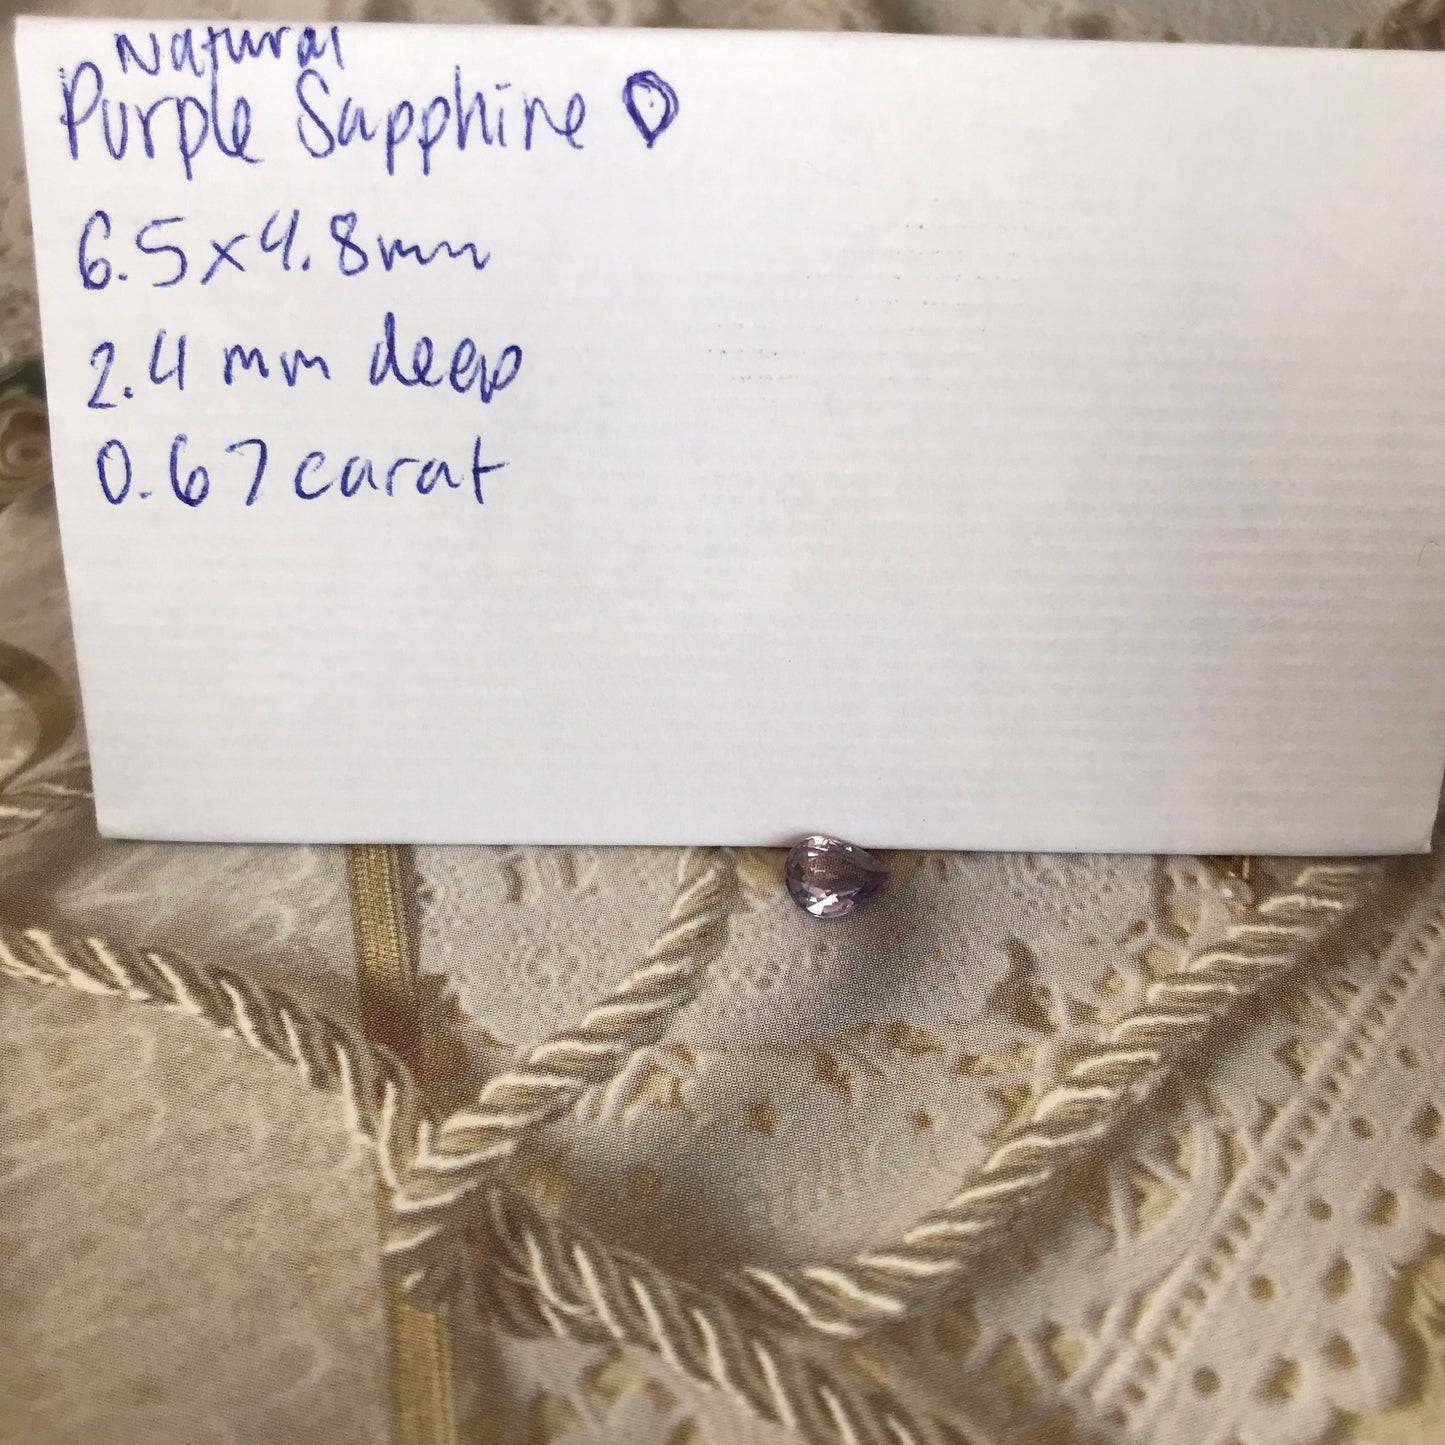 Natural
Purple Sapphire
6.5x4.8mm
2.4 mm deep
0.67 carat